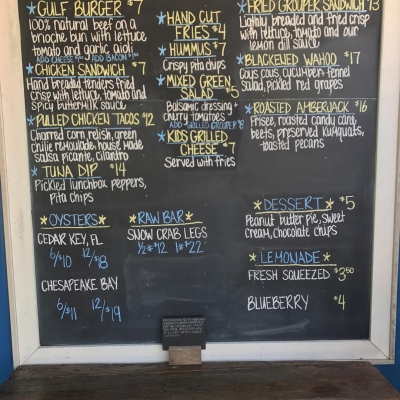 *GULF BURGER $7
100% natural beef on a
brioche bun with lettuce
tomato and garlic aioli
ADD CHEESE ADD BACON
*CHICKEN SANDWICH $7
Hand breaded tenders fried
crisp with lettuce, tomato and
spicy buttermilk sauce
*PULLED CHICKEN TACOS $12
Charred corn relish, green
chile remoulade, house made
salsa picante, cilantro
*TUNA DIP $14
Pickled lunchbox peppers,
pita chips
*OYSTERS*
CEDAR KEY, FL
6/$10 12/$18
CHESAPEAKE BAY
6/$11 12/$19
*HAND CUT
FRIES $4
*HUMMUS $7
Crispy pita chips
*MIXED GREEN
SALAD $5
Balsamic dressing +
cherry tomatoes
ADD GRILLED GROUPER $8
*KIDS GRILLED
CHEESE $7
Served with fries
*RAW BAR*
SNOW CRAB LEGS
1/2# $12 1# $22
*FRIED GROUPER SANDWICH $13
Lightly breaded and fried crisp
with lettuce, tomato and our
lemon dill sauce
*BLACKENED WAHOO $17
Cous cous, cucumber, fennel
salad, pickled red grapes
*ROASTED AMBERJACK $16
Frisee, roasted candy cane
beets, preserved kumquats,
toasted pecans
*DESSERT* $5
Peanut butter pie, sweet
cream, chocolate chips
*LEMONADE*
FRESH SQUEEZED $3.50
BLUEBERRY $4